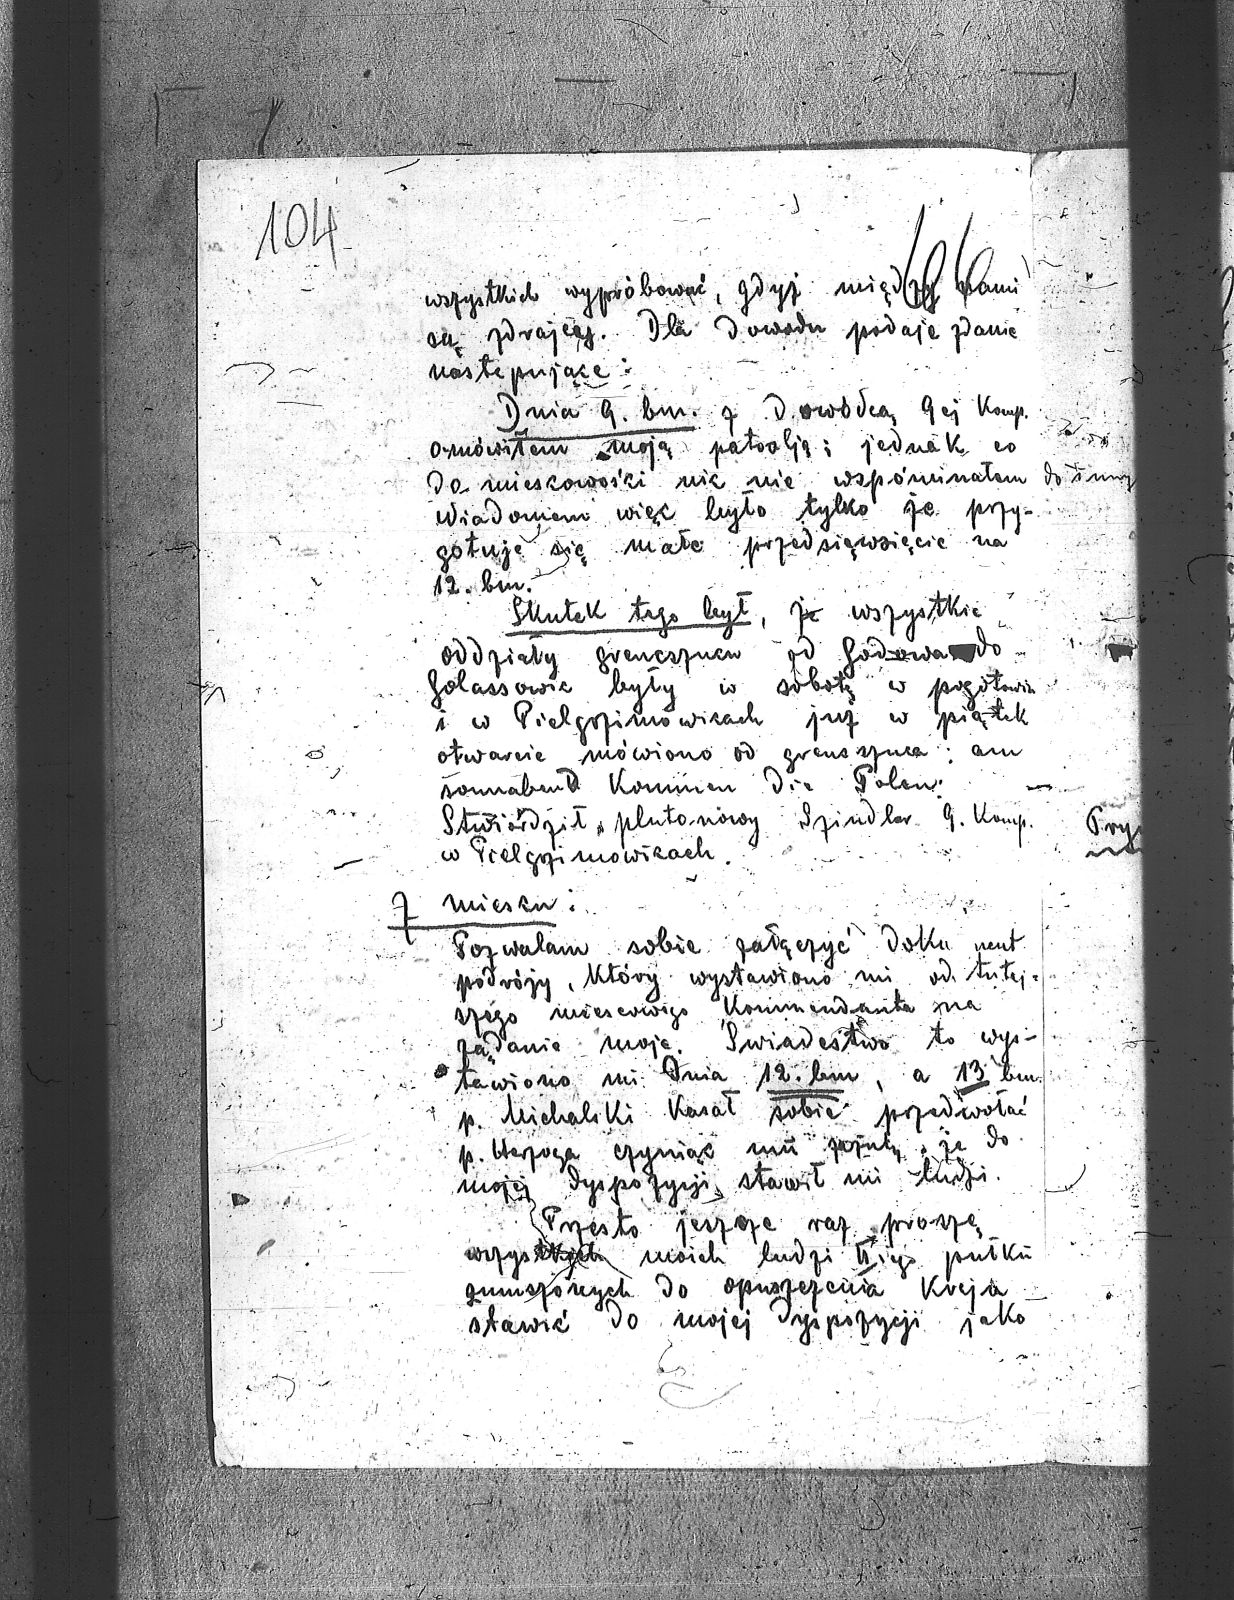 104
66
wszystkich wypróbować, gdyż między nami
są zdrajcy. Dla dowodu podaje zdanie
następujące:
Dnia 9. bm. z Dowódcą 9ej Komp.
omówiłem moją patrolję; jednak co
do miescowośki nic nie wspóminałem
Wiadomem więc było tylko że przy-
gotuje się małe przedsięwsięcie na
12. bm.
Skutek tego był, że wszystkie
oddziały grencszucu od Godowa do
Golassowic były w sobotę w pogotowiu
i w Pielgrzimowicach już w piątek
otwarcie mówiono od grenszuca: am
sonnabend Kommen die Polen.
Stwiérdził plutonowy Szindler 9. Komp.
w Pielgrzimowicach.
Z miescu:
Pozwalam sobie załączyć Dokument
podróży, który wystawiono mi od tutej-
szégo miescowego Kommendanta na
żądanie moje. Swiadestwo to wys-
tawiono mi Dnia 12. bm, a 13 bm.
p. Michalski Kasał sobie przedwołać
p. Herzoga czyniąc mu, że do
mojej dyspozycji stawił mi ludzi.
Przesto jeszcze raz proszę
wszystkych moich ludzi II go pułku
zmuszónych do opuszczenia Kreja
stawić do mojej dyspozycji jako